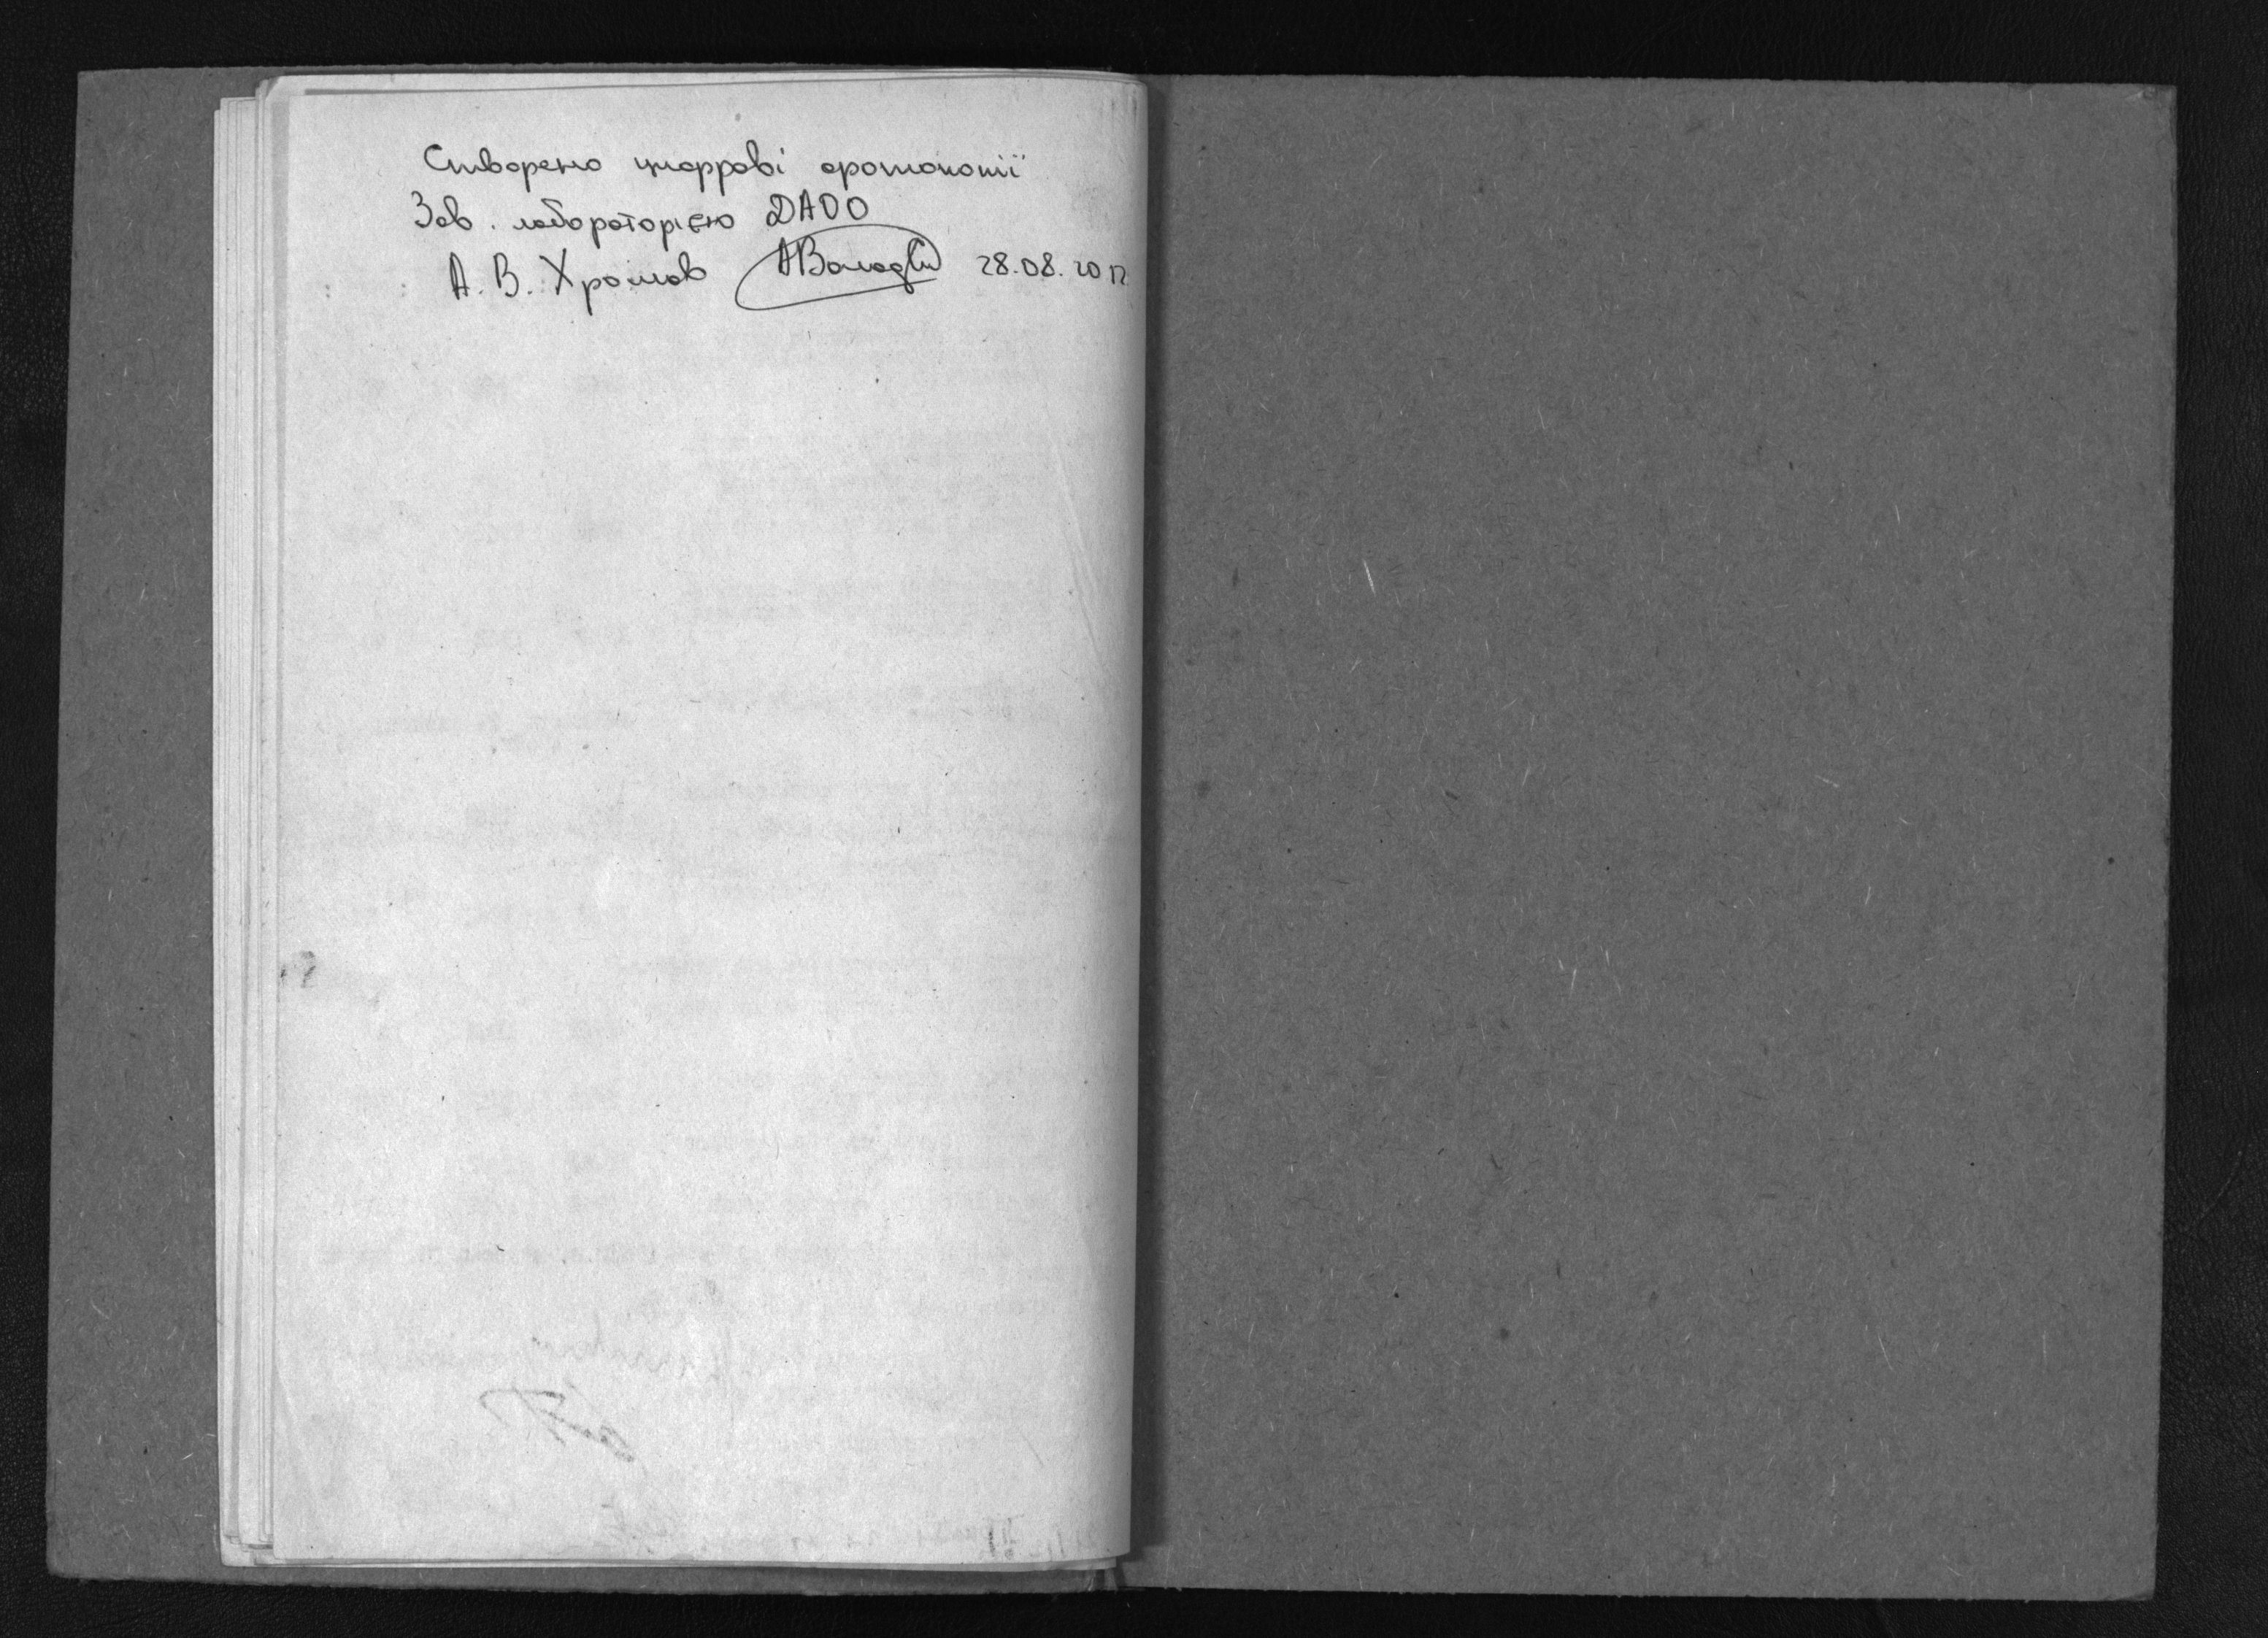 Створено цифрові фотокопії
Зав. лабораторією ДАОО
А. В. Хромов 28.08.2012